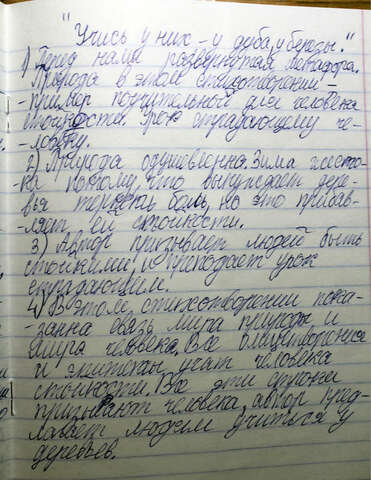 "Учись у них - у дуба, у берёзы."
1) Перед нами развернутая метафора.
Природа в этом стихотворений -
- пример поучительной для человека
стойкости. Урок страдающему че-
- ловеку.
2) Природа одушевленна. Зима жесто-
- ка потому, что вынуждает дере-
- вья терпеть боль, но это прибав-
- ляет ей стойкости.
3) Автор призывает людей быть
стойкими, и преподает урок
страдающим.
4) В этом стихотворении пока-
- занна связь мира природы и
мира человека. Все олицетворения
и эпитеты учат человека
стойкости. Все эти строки
призывают человека, автор пред-
- лагает людям учиться у
деревьев.